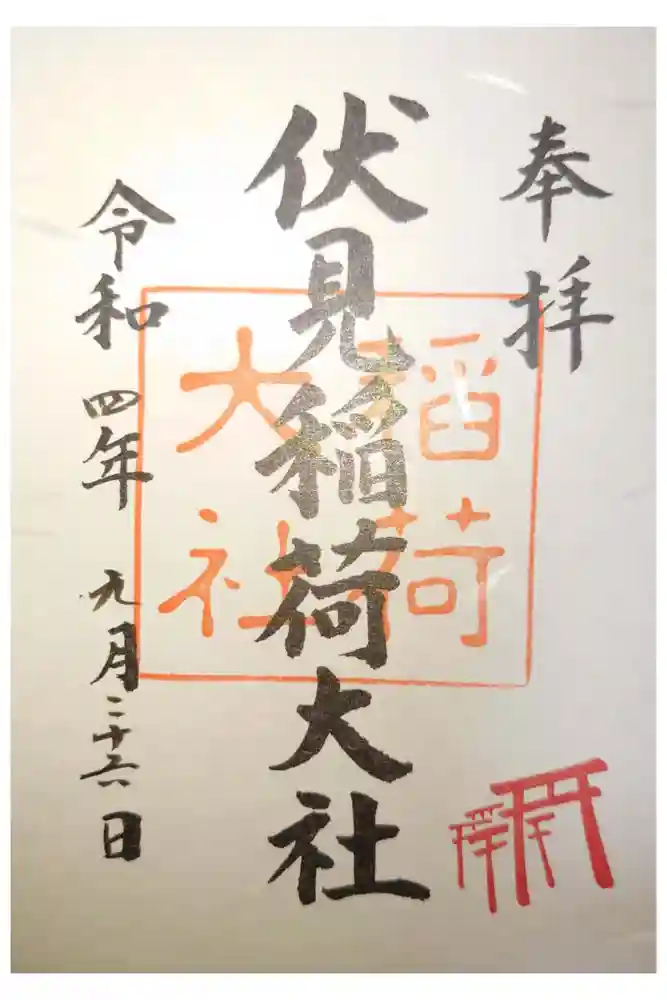 奉拝
伏見稲荷大社
稲荷
大社
令和 四年 九月二十六日